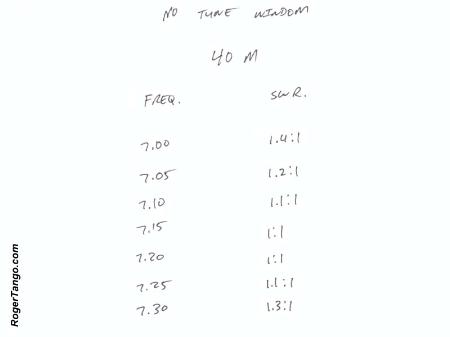 NO TUNE WINDOM
40 M
FREQ. SWR.
7.00 1.4:1
7.05 1.2:1
7.10 1.1:1
7.15 1:1
7.20 1:1
7.25 1.1:1
7.30 1.3:1
RogerTango.com